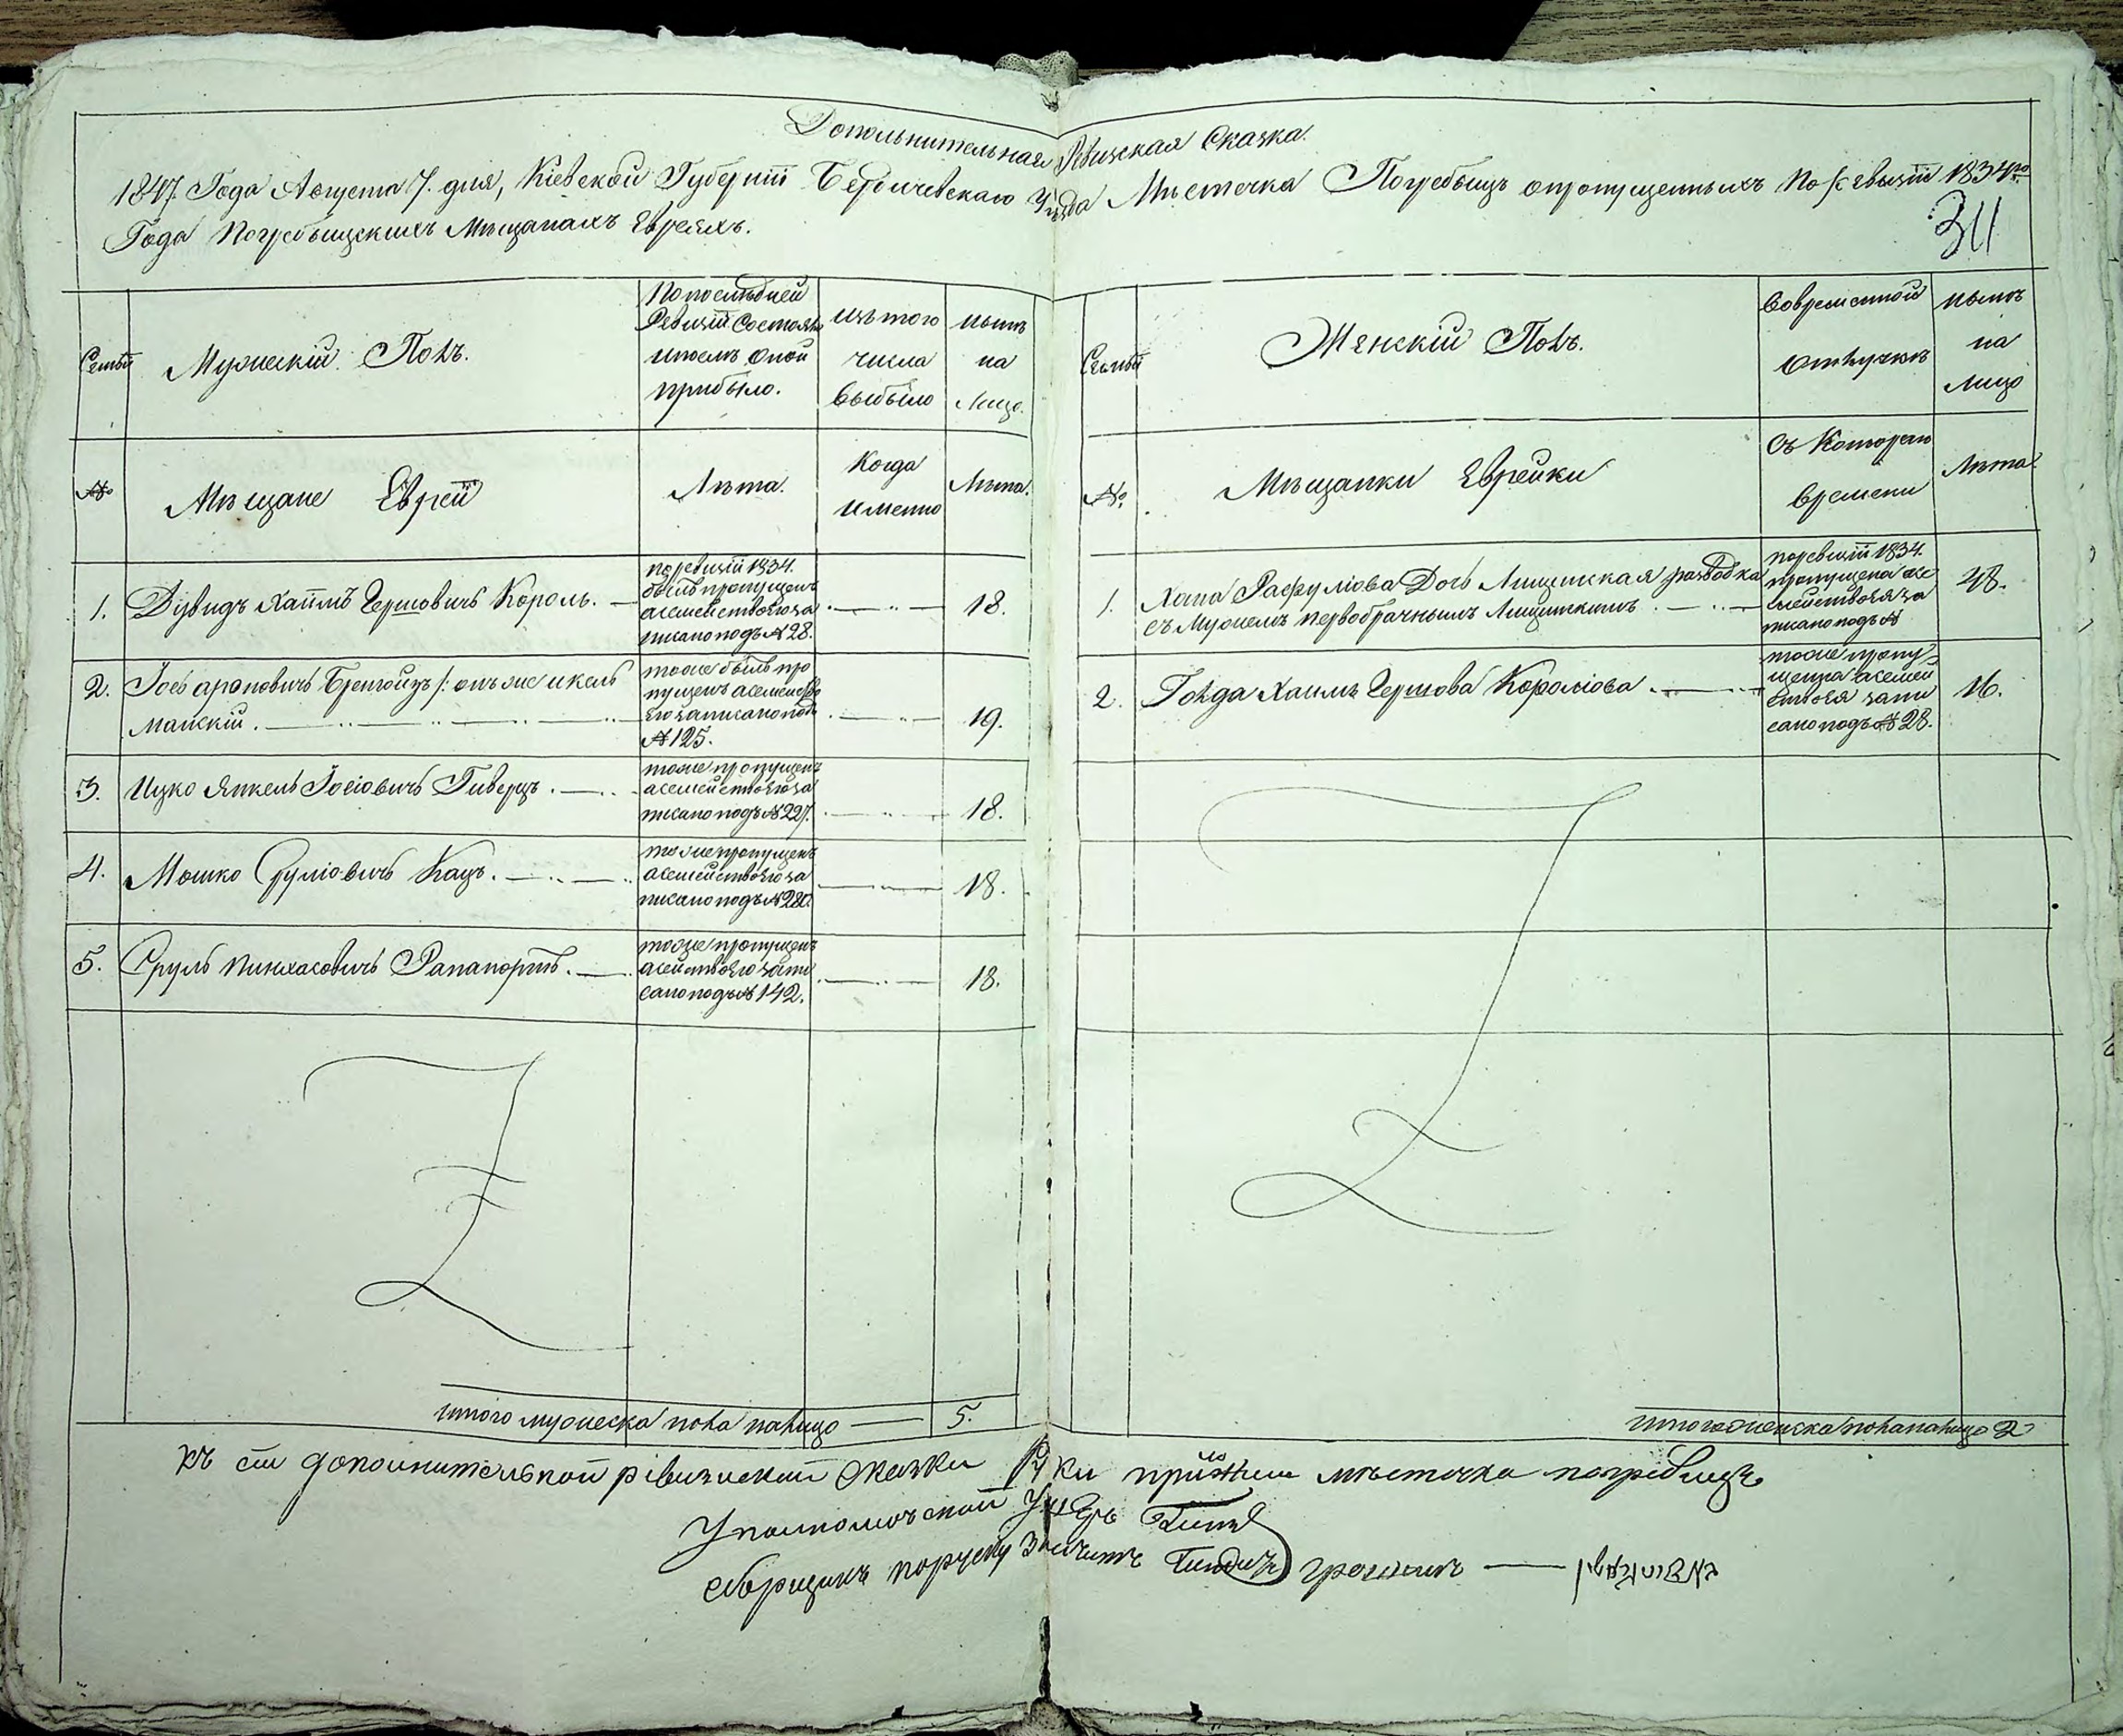 Дополнительная Ревизская Сказка.
1847. Года Августа 7. дня, Кіевской Губерніи Бердичевскаго Уѣзда Мѣстечка Погребыщъ опропущенныхъ По Ревизіи 1834го
Года Погребыщскихъ Мѣщанахъ Евреяхъ.
311
Семьи
Мужескій Полъ.
По последней
Ревизіи Состояло
ипослѣ оной
прибыло.
изъ того
числа
выбыло
нынѣ
на
Лицо.
№
Мѣщане Евреи
Лѣта.
Когда
именно
Лѣта.
1. Дувидъ Хаимъ Гершовичъ Король.
поревизіи 1834.
былъ пропущенъ
асемействоего за
писано подъ №28.
18.
2. Іось Ароновичъ онъ же
тоже былъ про
пущенъ асемейство
его записано подъ
№125.
19.
3. Ицко Янкель Іосіовичъ Гиверцъ.
тоже пропущенъ
асемействоего за
писано подъ №227.
18.
4. Мошко Сруліовичъ Кацъ.
тоже пропущенъ
асемействоего за
писано подъ
18.
5. Сруль Пинхасовичъ Рапапортъ.
тоже пропущенъ
асемействоего запи
сано подъ №142.
18.
итого мужеска пола налицо 5.
Семьи
Женскій Полъ.
Вовременной
отлучкѣ
нынѣ
на
лицо
№
Мѣщанки Еврейки
Съ Котораго
времени
Лѣта.
1. Хана Рафуліова Дочь Лищинская разводка
съ Мужемъ первобрачнымъ Лищинскимъ.
поревизіи 1834.
пропущена асе
мействоея за
писано подъ №
28.
2. Голда Хаимъ Гершова Короліова.
тоже пропу
щенна асемей
ствоея запи
сано подъ №28.
16.
итого женска пола налицо 2
Къ сій дополнительной ревизской сказки Руки приложили мѣстечка погребищъ
Уполномоченой
Сборщикъ